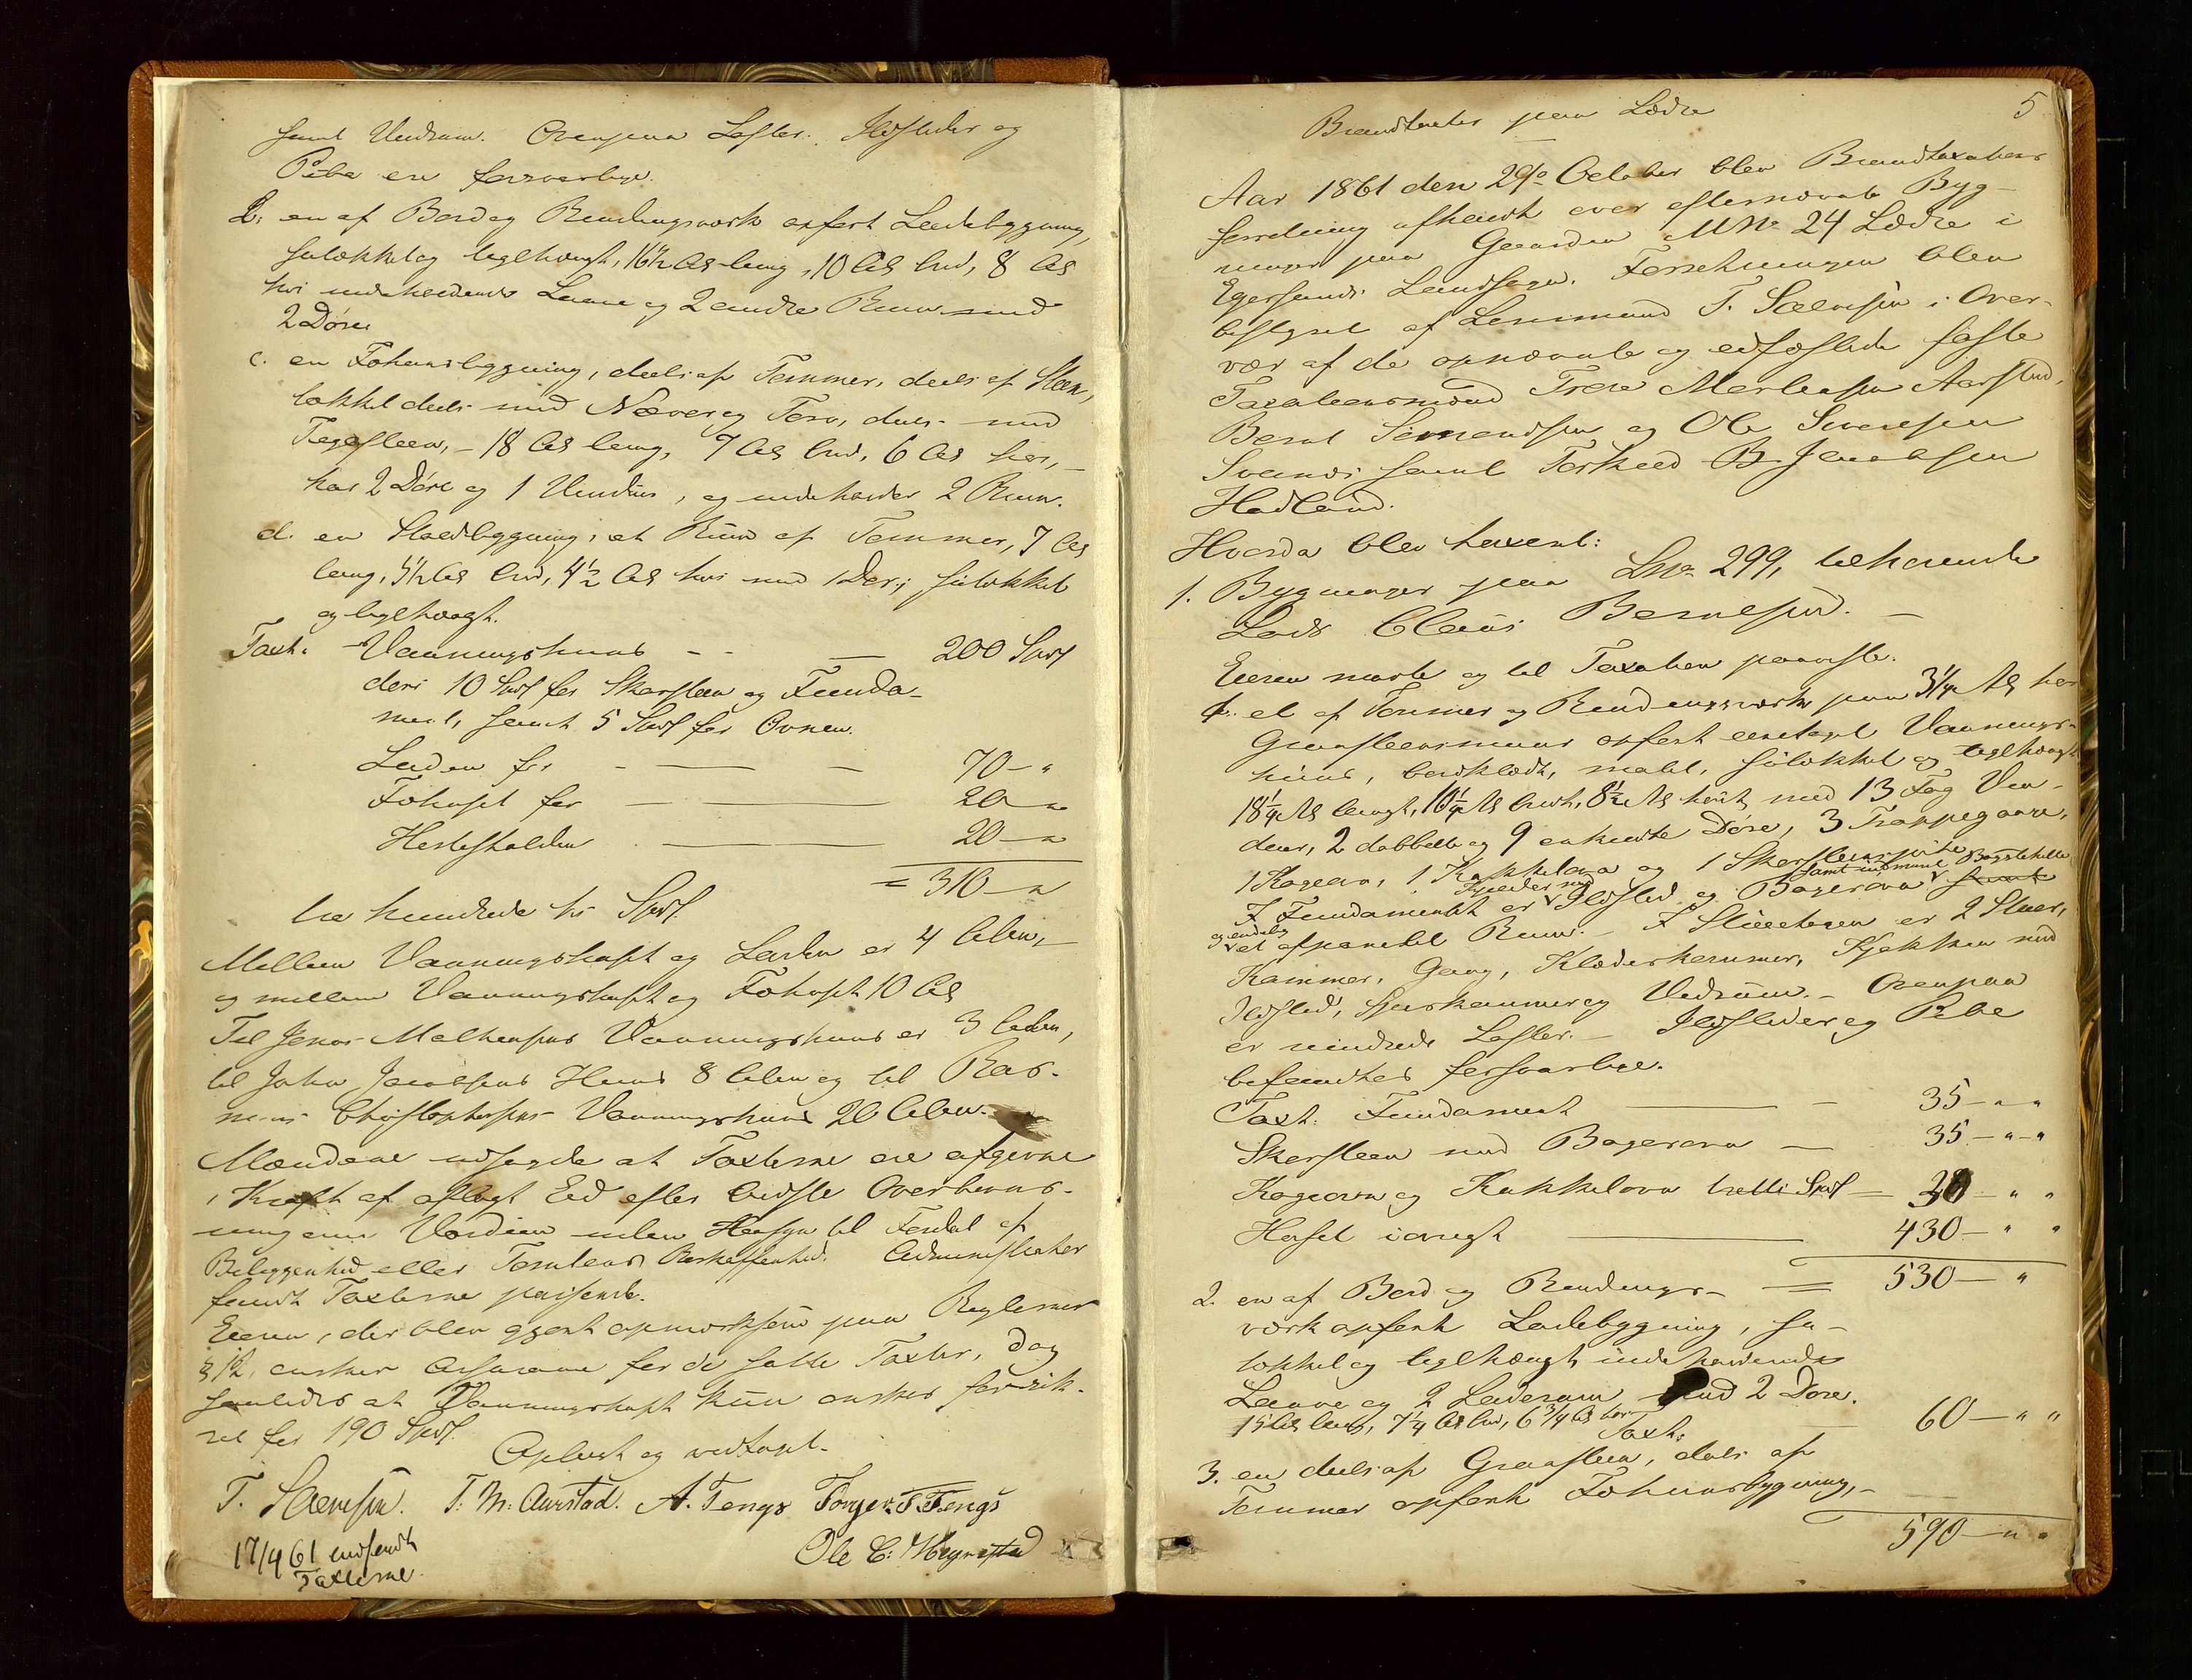 samt Vedrum. Ovenpaa Lofter. Ildsteder og
Pibe ere forsvarlige.
b: en af Bord og Bindingsværk opført Ladebygning,
sulækket og teglhængt, 16½ Al lang, 10 Al bred, 8 Al
høi indeholdende Laave og 2 andre Rum med
2 Døre
c. en Fohuusbygning, deels af Tømmer, deels af Steen,
tækket deels med Næver og Torv, deels med
Tegelsteen, – 18 Al lang, 7 Al bred, 6 Al høi, –
har 2 Døre og 1 Vindue, og indeholder 2 Rum.
d. en Staldbygning, et Rum af Tømmer, 7 Al
lang, 5½ Al bred, 4½ Al høi med 1 Dør, sulækket
og teglhængt.
Taxt: Vaaningshuus – – — 200 Spd
deri 10 Spd for Skorsteen og Funda-
ment, samt 5 Spd for Ovnen.
Laden for – — — 70 – "
Fohuset for — — 20 – "
Hestestalden — — 20 – "
= 310 – "
tre hundrede ti Spd.
Mellem Vaaningshuset og Laden er 4 Alen, –
og mellem Vaaningshuset og Fohuset 10 Al
Til Jonas Mathiasens Vaaningshuus er 3 Alen,
til John Jacobsens Huus 8 Alen og til Ras-
mus Christophersens Vaaningshuus 20 Alen.
Mændene udsagde at Taxterne ere afgivne
i Kraft af aflagt Eed efter bedste Overbeviis-
ning om Værdien uden Hensyn til Fordel af
Beliggenhed eller Tomtens Beskaffenhed. Administrator
fandt Taxterne passende.
Eieren, der blev gjort opmærksom paa Reglernes
§ 12, ønsker Assurance for de satte Taxter, dog
saaledes at Vaaningshuset kun ønskes forsik-
ret for 190 Spd.
Oplæst og vedtaget.
T. Sælensen. T: M: Aarstad. A. Tengs Torger T Tengs
Ole C: Megrestad
17/4 61 indsendt
Taxterne.
5
Brandtaxter paa Lædre
Aar 1861 den 29de October blev Brandtaxations
forretning afholdt over efternævnte Byg-
ninger paa Gaarden M No 24 Lædre i
Egersunds Landsogn. Forretningen blev
bestyret af Lensmand T. Sælensen i Over-
vær af de opnævnte og edfæstede faste
Taxationsmænd Tore Mortensen Aarstad,
Bernt Simonsen og Ole Sivertsen
Svanes samt Torkild B. Jacobsen
Hadland.
Hvorda blev taxeret:
1. Bygninger paa Lno 299, tilhørende
Lods Claus Berntsen. –
Eieren mødte og til Taxation paaviste.
1. et af Tømmer og Bindingsværk paa 3¼ Al høi
Graasteensmuur opført eenetages Vaanings-
huus, bordklædt, malet, sulækket og teglhængt
18¼ Al langt, 16¼ Al bredt, 8½ Al høit, med 13 Fag Vin-
duer, 2 dobbelte og 9 enkelte Døre, 3 Trappegange,
1 Kogeovn, 1 Kakkelovn og 1 Skorsteenspibe
Kjælder med samt indmuret Bryggekedel
I Fundamentet er Ildsted og Bagerovn samt
og endelig
et afpanelet Rum. – I Stueetagen er 2 Stuer,
Kammer, Gang, Klæderkammer, Kjøkken med
Ildsted, Spiskammer og Vedrum. – Ovenpaa
er indredt Lofter. – Ildsteder og Pibe
befandtes forsvarlige.
Taxt: Fundament — – 35 – " "
Skorsteen med Bagerovn — 35 – " – "
Kogeovn og Kakkelovn tretti Spd — 30 – " "
Huset iøvrigt — 430 – " "
= 530 – "
2. en af Bord og Bindings-
værk opført Ladebygning, su-
lækket og teglhængt, indeholdende
Laave og 2 Laderum med 2 Døre.
15 Al lang, 7¼ Al bred, 6¾ Al høi
Taxt: — 60 – " "
3. en deels af Graasteen, deels af
Tømmer opført Fohuusbygning, –
590 – " "